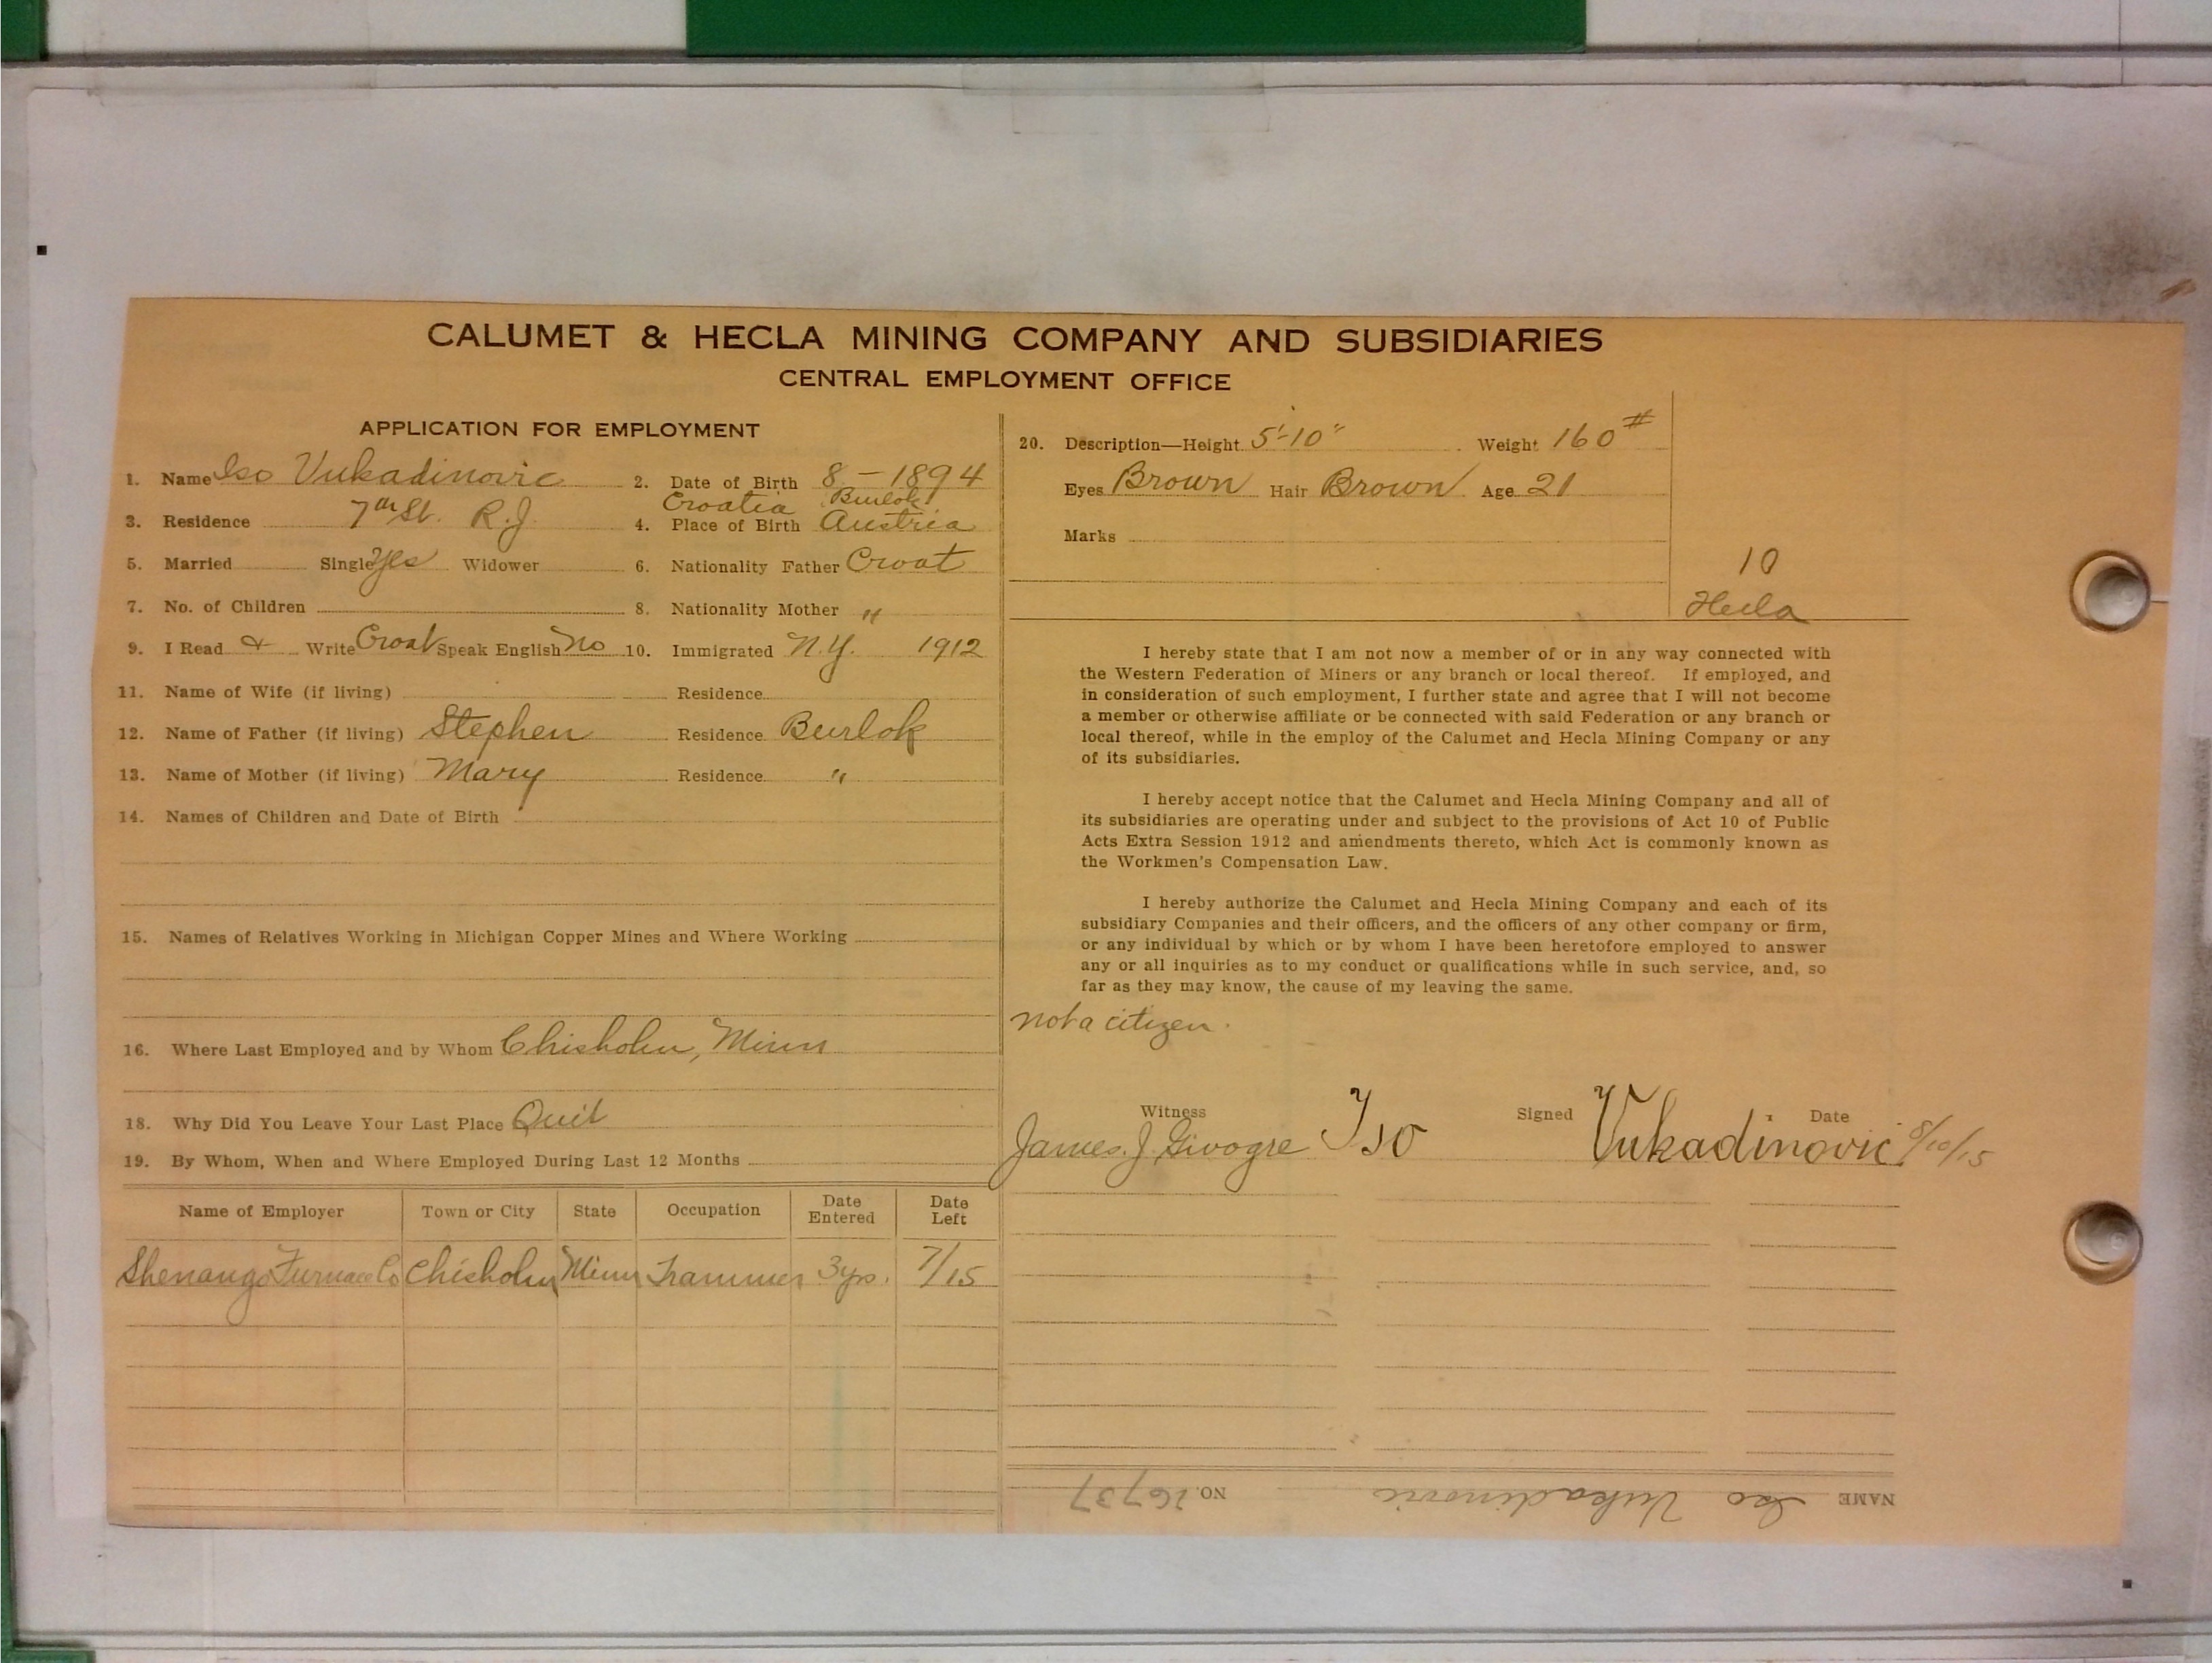 CALUMET & HECLA MINING COMPANY AND SUBSIDIARIES
CENTRAL EMPLOYMENT OFFICE
APPLICATION FOR EMPLOYMENT
1. Name Iso Vukadinovic 2. Date of Birth 8 - 1894
Croatia Burlok
3. Residence 7th St. R.J. 4. Place of Birth Austria
5. Married Single Yes Widower 6. Nationality Father Croat
7. No. of Children 8. Nationality Mother "
9. I Read & Write Croat Speak English No 10. Immigrated N.Y. 1912
11. Name of Wife (if living) Residence
12. Name of Father (if living) Stephen Residence Burlok
13. Name of Mother (if living) Mary Residence "
14. Names of Children and Date of Birth
15. Names of Relatives Working in Michigan Copper Mines and Where Working
16. Where Last Employed and by Whom Chisholm, Minn
18. Why Did You Leave Your Last Place Quit
19. By Whom, When and Where Employed During Last 12 Months
Name of Employer Town or City State Occupation Date Entered Date Left
Shenango Furnace Co Chisholm Minn Trammer 3 yrs. 7/15
20. Description—Height 5'-10" Weight 160#
Eyes Brown Hair Brown Age 21
Marks
10
Hecla
I hereby state that I am not now a member of or in any way connected with
the Western Federation of Miners or any branch or local thereof. If employed, and
in consideration of such employment, I further state and agree that I will not become
a member or otherwise affiliate or be connected with said Federation or any branch or
local thereof, while in the employ of the Calumet and Hecla Mining Company or any
of its subsidiaries.
I hereby accept notice that the Calumet and Hecla Mining Company and all of
its subsidiaries are operating under and subject to the provisions of Act 10 of Public
Acts Extra Session 1912 and amendments thereto, which Act is commonly known as
the Workmen's Compensation Law.
I hereby authorize the Calumet and Hecla Mining Company and each of its
subsidiary Companies and their officers, and the officers of any other company or firm,
or any individual by which or by whom I have been heretofore employed to answer
any or all inquiries as to my conduct or qualifications while in such service, and, so
far as they may know, the cause of my leaving the same.
not a citizen.
Witness Signed Date
James. J. Givogre Iso Vukadinović 8/10/15
NAME Iso Vukadinovic NO. 26737